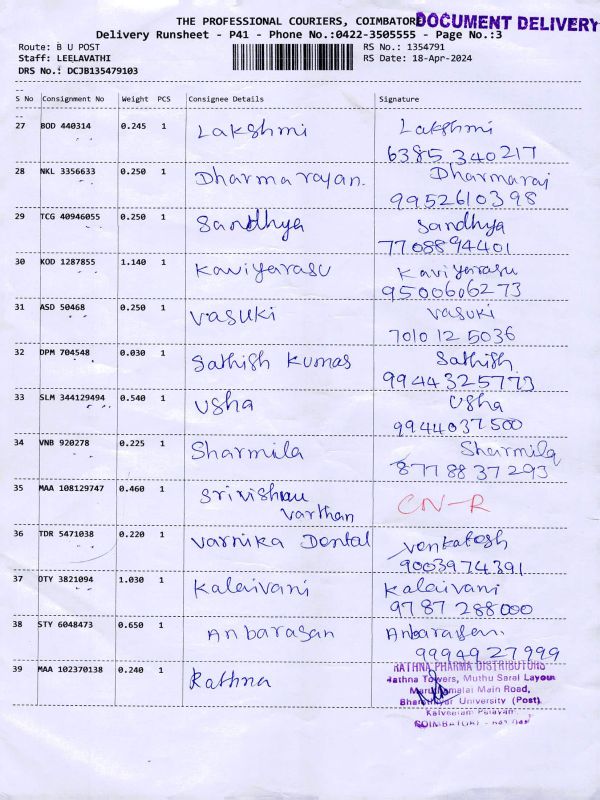 THE PROFESSIONAL COURIERS, COIMBATORE
DOCUMENT DELIVERY
Delivery Runsheet - P41 - Phone No.:0422-3505555 - Page No.:3
Route: B U POST
RS No.: 1354791
Staff: LEELAVATHI
RS Date: 18-Apr-2024
DRS No.: DCJB135479103
S No Consignment No Weight PCS Consignee Details Signature
27 BOD 440314 0.245 1 Lakshmi Lakshmi
6385 340217
28 NKL 3356633 0.250 1 Dharmarayan. Dharmaraj
9952610398
29 TCG 40946055 0.250 1 Sandhya Sandhya
7708894401
30 KOD 1287855 1.140 1 Kaviyarasu Kaviyarasu
9500606273
31 ASD 50468 0.250 1 Vasuki Vasuki
7010 12 5036
32 DPM 704548 0.030 1 Sathish Kumar Sathish
9944325773
33 SLM 344129494 0.540 1 Usha Usha
9944037500
34 VNB 920278 0.225 1 Sharmila Sharmila
8778837293
35 MAA 108129747 0.460 1 Srivishnu CN-R
Varthan
36 TDR 5471038 0.220 1 Varnika Dental Venkatesh
9003974391
37 OTY 3821094 1.030 1 Kalaivani Kalaivani
9787 288000
38 STY 6048473 0.650 1 Anbarasan Anbarasan.
9994927999
39 MAA 102370138 0.240 1 Rathna RATHNA PHARMA DISTRIBUTORS
Rathna Towers, Muthu Saral Layout
Marudhamalai Main Road,
Bharathiyar University (Post)
Kalveeram Palayam
COIMBATORE -